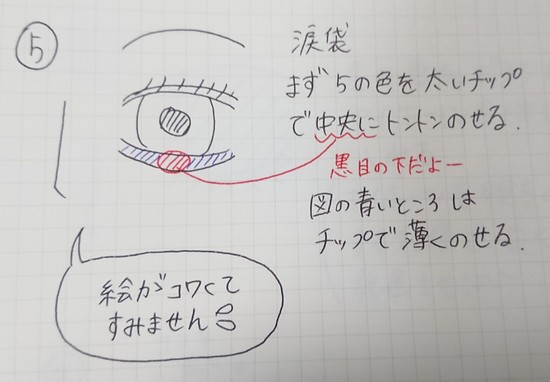 ⑤
涙袋
まず5の色を太いチップ
で中央にトントンのせる.
黒目の下だよー
図の青いところは
チップで薄くのせる.
絵がコワくて
すみません